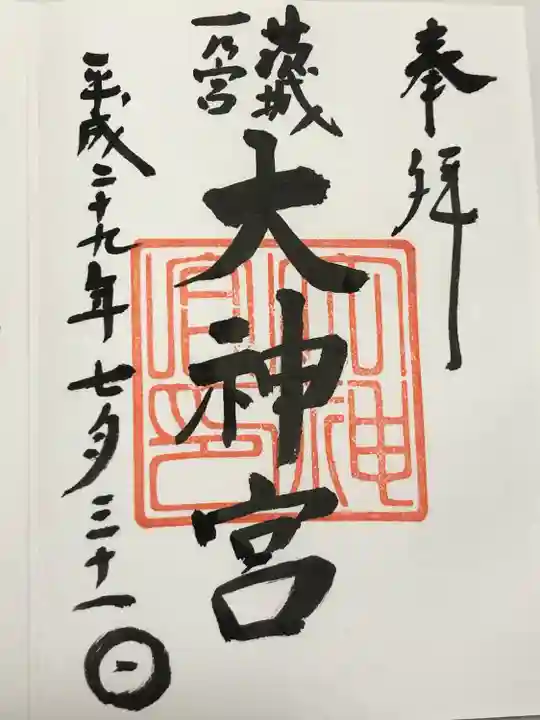 奉拝
茨城
一乃宮
大神宮
平成二十九年七月三十一日